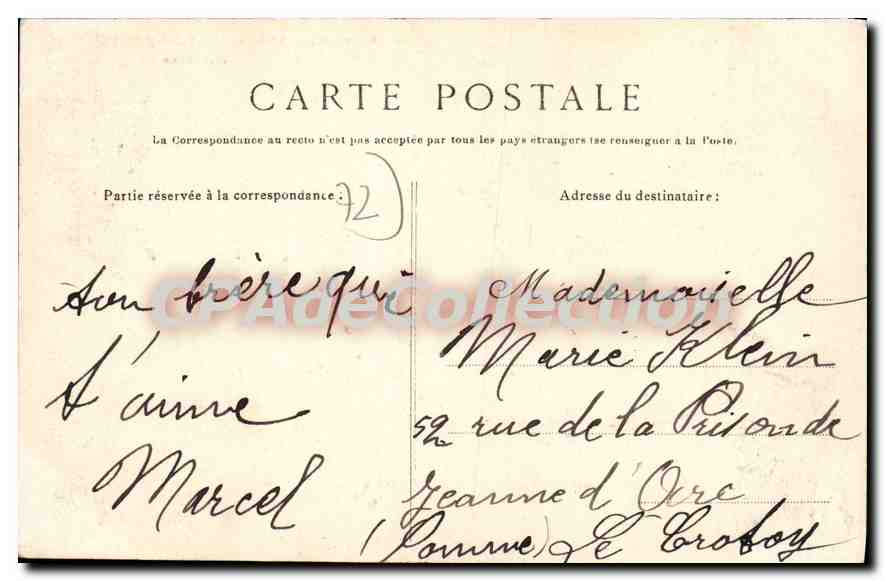 CARTE POSTALE
La Correspondance au recto n'est pas acceptée par tous les pays étrangers (se renseigner à la Poste.
Partie réservée à la correspondance :
72
Adresse du destinataire :
ton frère qui
t'aime
Marcel
CPADeCollection
Mademoiselle
Marie Klein
52 rue de la Prison de
Jeanne d'Arc
(Somme) Le Crotoy